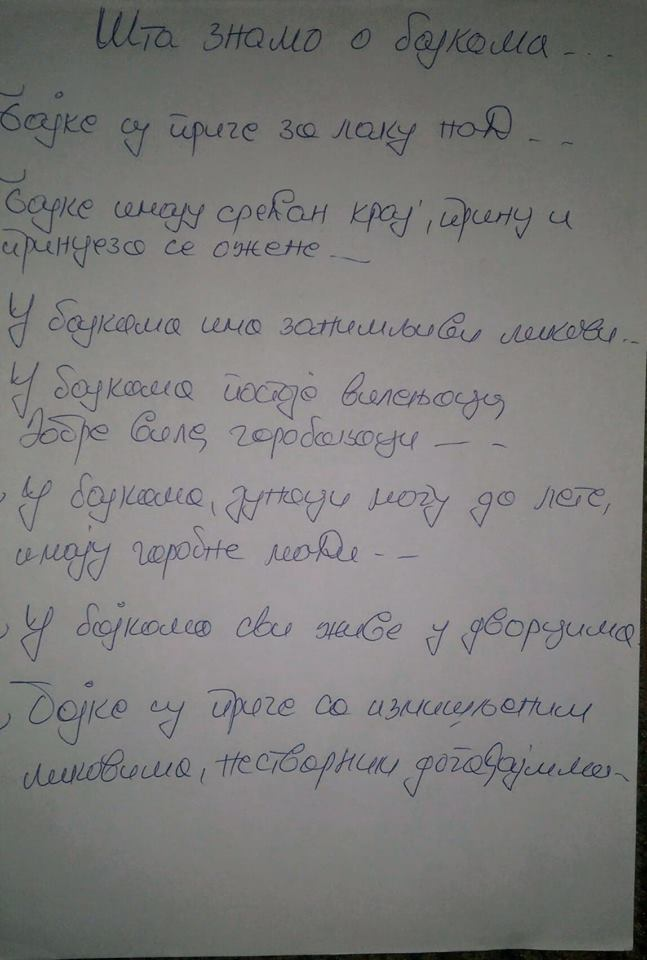 Шта знамо о бајкама...
Бајке су приче за лаку ноћ...
Бајке имају срећан крај, принц и
принцеза се ожене...
У бајкама има занимљиви ликови...
У бајкама постоје виленјаци,
добре виле, чаробњаци...
У бајкама, јунаци могу да лете,
имају чаробне моћи...
У бајкама сви живе у дворцима
Бајке су приче са измишљеним
ликовима, нестварним догађајима...